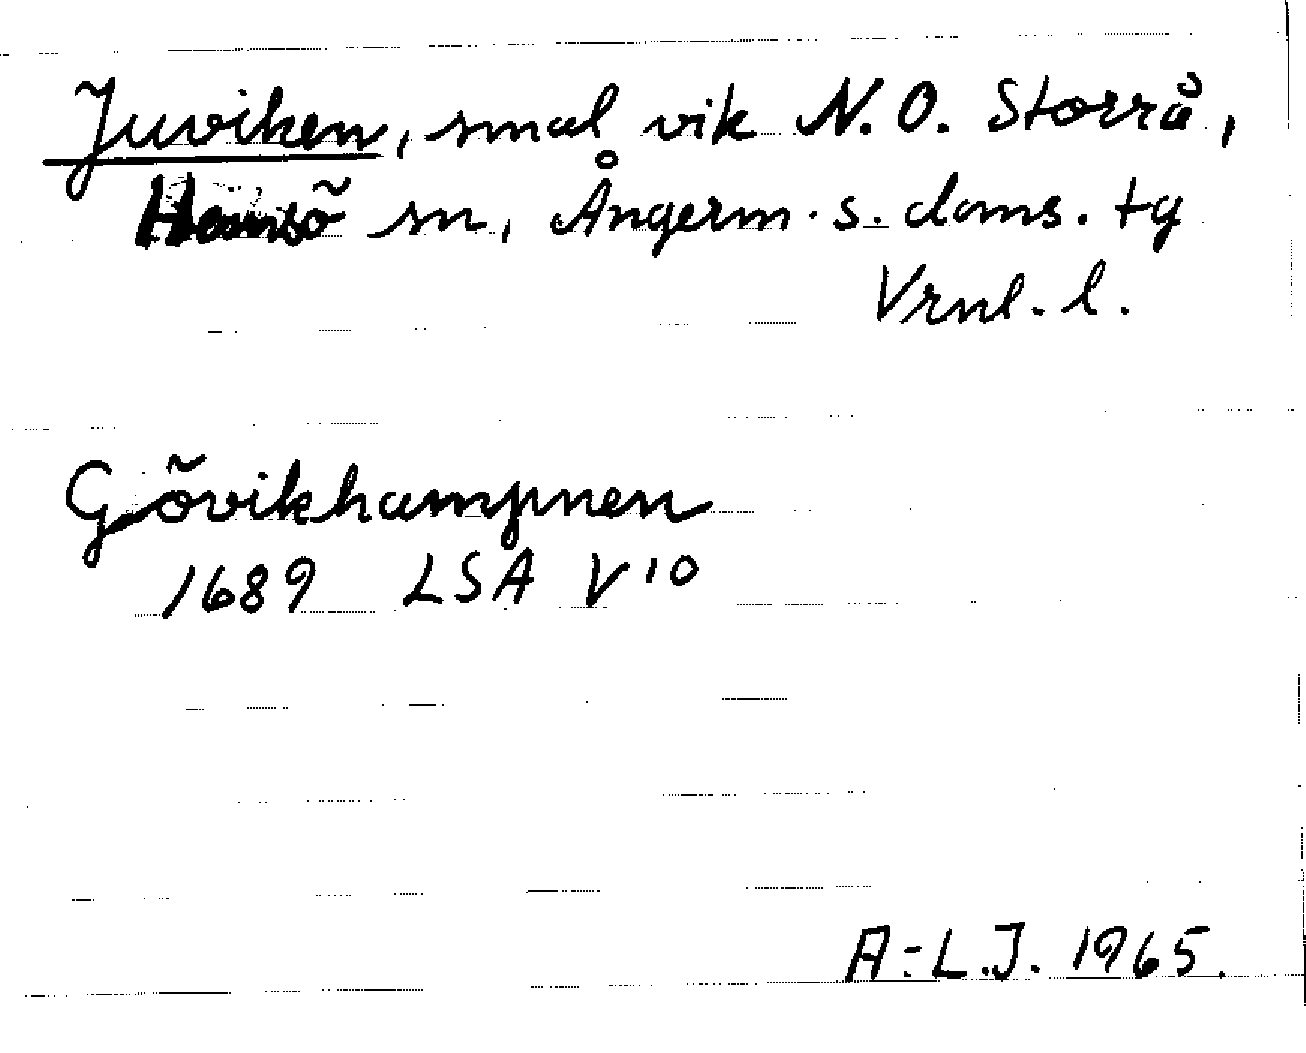 Juviken, smal vik N.O. Storrå,
Hemsö sn, Ångerm. s. doms. tg
Vrnl. l.
Gövikhampnen
1689 LSA V 10
A:-L.J. 1965.